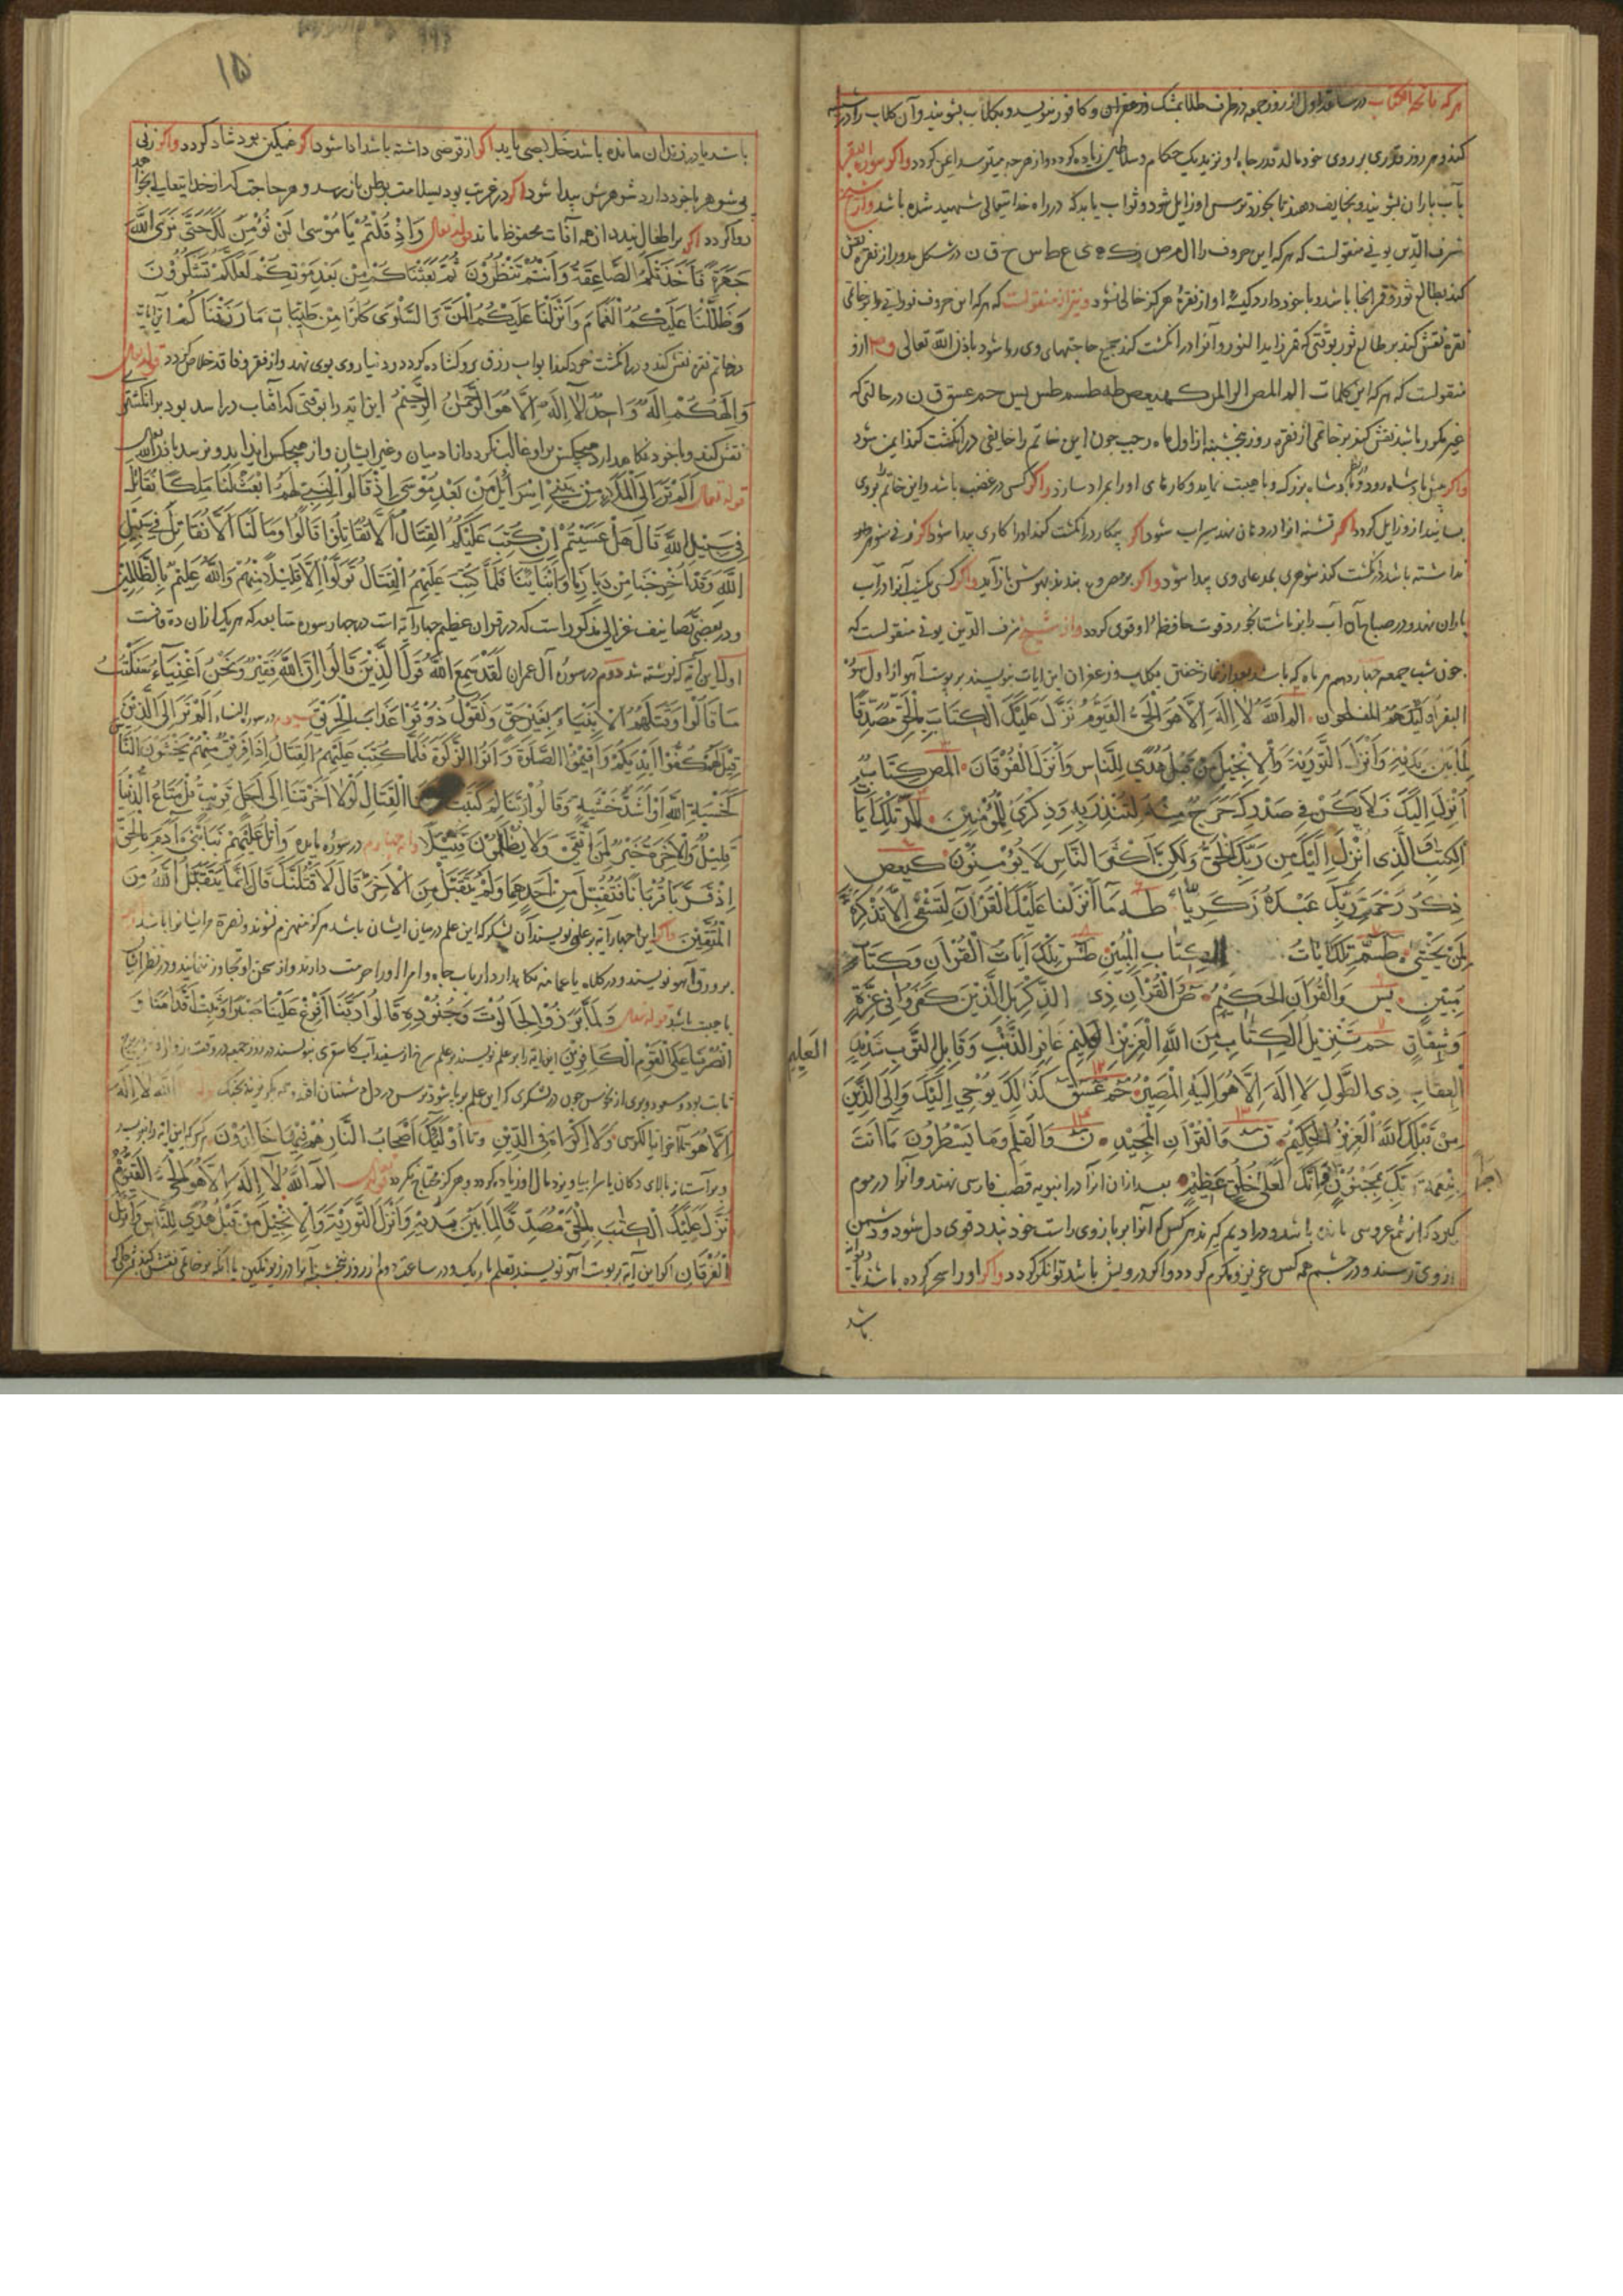 هر که فاتحة الکتاب در ساعت اول از روز جمعه در ظرف طلا بمشک و زعفران و کافور بنویسد و بکلاب بشویند وآن کلاب را در شیشه
کند و هر روز قدری بر روی خود مالد قدر و جاه او نزدیک حکام و سلاطین زیاده کردد و از هر چه میترسد ایمن کردد واکر سورة البقره
بآب باران بشویند و بخایف دهند تا بخورد ترس او زایل شود و ثواب یابد که در راه خدا تعالی شهید شده باشد واز شیخ
شرف الدین بونی منقولست که هر که این حروف را ال م ص ر ک ه ی ع ط س ح ق ن در شکل مدور از نقره نقش
کند بطالع ثور و قمر آنجا باشد و با خود دارد کیسه او از نقره هرکز خالی نشود و نیز از منقولست که هر که این حروف نورانی را بر خاتمی
نقره نقش کند بر طالع ثور بوقتی که قمر زاید النور و آنرا در انکشت کند جمیع حاجتهای وی روا شود باذن الله تعالی و هم ازو
منقولست که هر که این کلمات الم المص الر المر کهیعص طه طسم طس یس حم عسق ق ن در حالتی که
قمر باشد نقش کند بر خاتمی از نقره روز پنجشنبه از اول ماه رجب چون این خاتم را خایفی در انکشت کند ایمن شود
واکر پیش پادشاه رود پادشاه بزرک و با هیبت نماید و کارهای او را بمراد سازد واکر کسی در غضب باشد و این خاتم بر وی
بمالند از و زایل کردد واکر تشنه انرا در دهان نهد سیراب شود اکر بیکار در انکشت کند او را کاری پیدا شود اکر زنی شوهر
نداشته باشد در انکشت کند شوهری بمدعای وی پیدا شود واکر بر مصروع بندند بهوش باز آید واکر کسی آنرا در آب
باران نهد و در صباح آن آب را بناشتا بخورد قوت حافظه او قوی کردد واز شیخ شرف الدین بونی منقولست که
چون شب جمعه چهاردهم هر ماه که باشد بعد از نماز خفتن بکلاب و زعفران این ایات بنویسند بر پوست آهو از اول سوره
البقره اولیک هم المفلحون الم الله لا اله الا هو الحی القیوم نزل علیک الکتاب بالحق مصدقا
لما بین یدیه وانزل التوریة والانجیل من قبل هدی للناس وانزل الفرقان المص کتاب
انزل الیک فلا یکن فی صدرک حرج منه لتنذر به وذکری للمؤمنین المر تلک آیات
الکتاب والذی انزل الیک من ربک الحق ولکن اکثر الناس لا یؤمنون کهیعص
ذکر رحمت ربک عبده زکریا طه ما انزلنا علیک القرآن لتشقی الا تذکرة
لمن یخشی طسم تلک ایات الکتاب المبین طس تلک ایات القرآن وکتاب
مبین یس والقرآن الحکیم ص والقرآن ذی الذکر بل الذین کفروا فی عزة
وشقاق حم تنزیل الکتاب من الله العزیز العلیم غافر الذنب وقابل التوب شدید
العلیم
العقاب ذی الطول لا اله الا هو الیه المصیر حم عسق کذلک یوحی الیک والی الذین
من قبلک الله العزیز الحکیم ق والقرآن المجید ن والقلم وما یسطرون ما انت
بنعمة ربک بمجنون وانک لعلی خلق عظیم بعد از ان انرا در انبوبه قصب فارسی نهند و آنرا در موم
کیرد که از شمع عروسی مانده باشد و در ادیم کیرند هر کس که آنرا بر بازوی راست خود بندد قوی دل شود و دشمن
از وی ترسد و در چشم همه کس عزیز و مکرم کردد واکر درویش باشد توانکر کردد واکر او را سحر کرده باشند یا
باشد
١٥
باشد یا در زندان مانده باشد خلاصی یابد اکر از قرضی داشته باشد ادا شود اکر غمکین بود شاد کردد واکر زنی
بی شوهر با خود دارد شوهرش پیدا شود اکر در غربت بود بسلامت بوطن باز رسد و هر حاجت که از خدایتعالی خواهد
روا کردد اکر بر اطفال بندد از همه آفات محفوظ ماند قوله تعالی واذ قلتم یا موسی لن نؤمن لک حتی نری الله
جهرة فاخذتکم الصاعقة وانتم تنظرون ثم بعثناکم من بعد موتکم لعلکم تشکرون
وظللنا علیکم الغمام وانزلنا علیکم المن والسلوی کلوا من طیبات ما رزقناکم این آیت
در خاتم نقره نقش کند و در انکشت خود کند ابواب رزق برو کشاده کردد و دنیا روی بوی نهد و از فقر و فاقه خلاص کردد قوله تعالی
والهکم اله واحد لا اله الا هو الرحمن الرحیم این ایه را بوقتی که افتاب در اسد بود بر انکشتری
نقش کند و با خود نکاه دارد هیچکس برو غالب نکردد از ادمیان و غیر ایشان و از هیچکس ایذا بدو نرسد باذن الله
قوله تعالی الم تر الی الملاء من بنی اسرائیل من بعد موسی اذ قالوا لنبی لهم ابعث لنا ملکا نقاتل
فی سبیل الله قال هل عسیتم ان کتب علیکم القتال الا تقاتلوا قالوا وما لنا الا نقاتل فی سبیل
الله وقد اخرجنا من دیارنا وابنائنا فلما کتب علیهم القتال تولوا الا قلیلا منهم والله علیم بالظالمین
و در بعضی تصانیف غزالی مذکور است که در قران عظیم چهار آیه است در چهار سوره متتابعه که هر یک از ان ده قافست
اول این آیه که نوشته شد دوم در سوره آل عمران لقد سمع الله قول الذین قالوا ان الله فقیر ونحن اغنیاء سنکتب
ما قالوا وقتلهم الانبیاء بغیر حق ونقول ذوقوا عذاب الحریق سیم در سوره النساء الم تر الی الذین
قیل لهم کفوا ایدیکم واقیموا الصلوة واتوا الزکوة فلما کتب علیهم القتال اذا فریق منهم یخشون الناس
کخشیة الله او اشد خشیة وقالوا ربنا لم کتبت علینا القتال لولا اخرتنا الی اجل قریب قل متاع الدنیا
قلیل والاخرة خیر لمن اتقی ولا یظلمون فتیلا وآیه چهارم در سوره مایده واتل علیهم نبا ابنی آدم بالحق
اذ قربا قربانا فتقبل من احدهما ولم یتقبل من الاخر قال لاقتلنک قال انما یتقبل الله من
المتقین واکر این چهار آیه بر علمی نویسند آن لشکر که این علم در میان ایشان باشد هرکز منهزم نشوند و نصرة مر ایشانرا باشد
بر ورق آهو نویسند و در کلاه یا عمامه نکاهدارد ارباب جاه و امرا او را حرمت دارند و از سخن او تجاوز ننمایند و در نظر ایشان
با هیبت باشد قوله تعالی ولما برزوا لجالوت وجنوده قالوا ربنا افرغ علینا صبرا وثبت اقدامنا و
انصرنا علی القوم الکافرین این ایه را بر علم نویسند در روز جمعه در وقت
الله لا اله
الا هو تا آخر ایة الکرسی ولا اکراه فی الدین وتا اولئک اصحاب النار هم فیها خالدون هر که این ایه را بنویسد
و بر آستانه بالای دکان یا سرا بیاویزد مال او زیاده کردد و هرکز محتاج نکردد قوله تعالی الم الله لا اله الا هو الحی القیوم
نزل علیک الکتب بالحق مصدقا لما بین یدیه وانزل التوریة والانجیل من قبل هدی للناس وانزل
الفرقان اکر این آیه بر پوست آهو نویسند بقلم باریک و در ساعت دوم از روز پنجشنبه آنرا در زیر نکین یا انکه بر خاتمی نقش کنند هر که